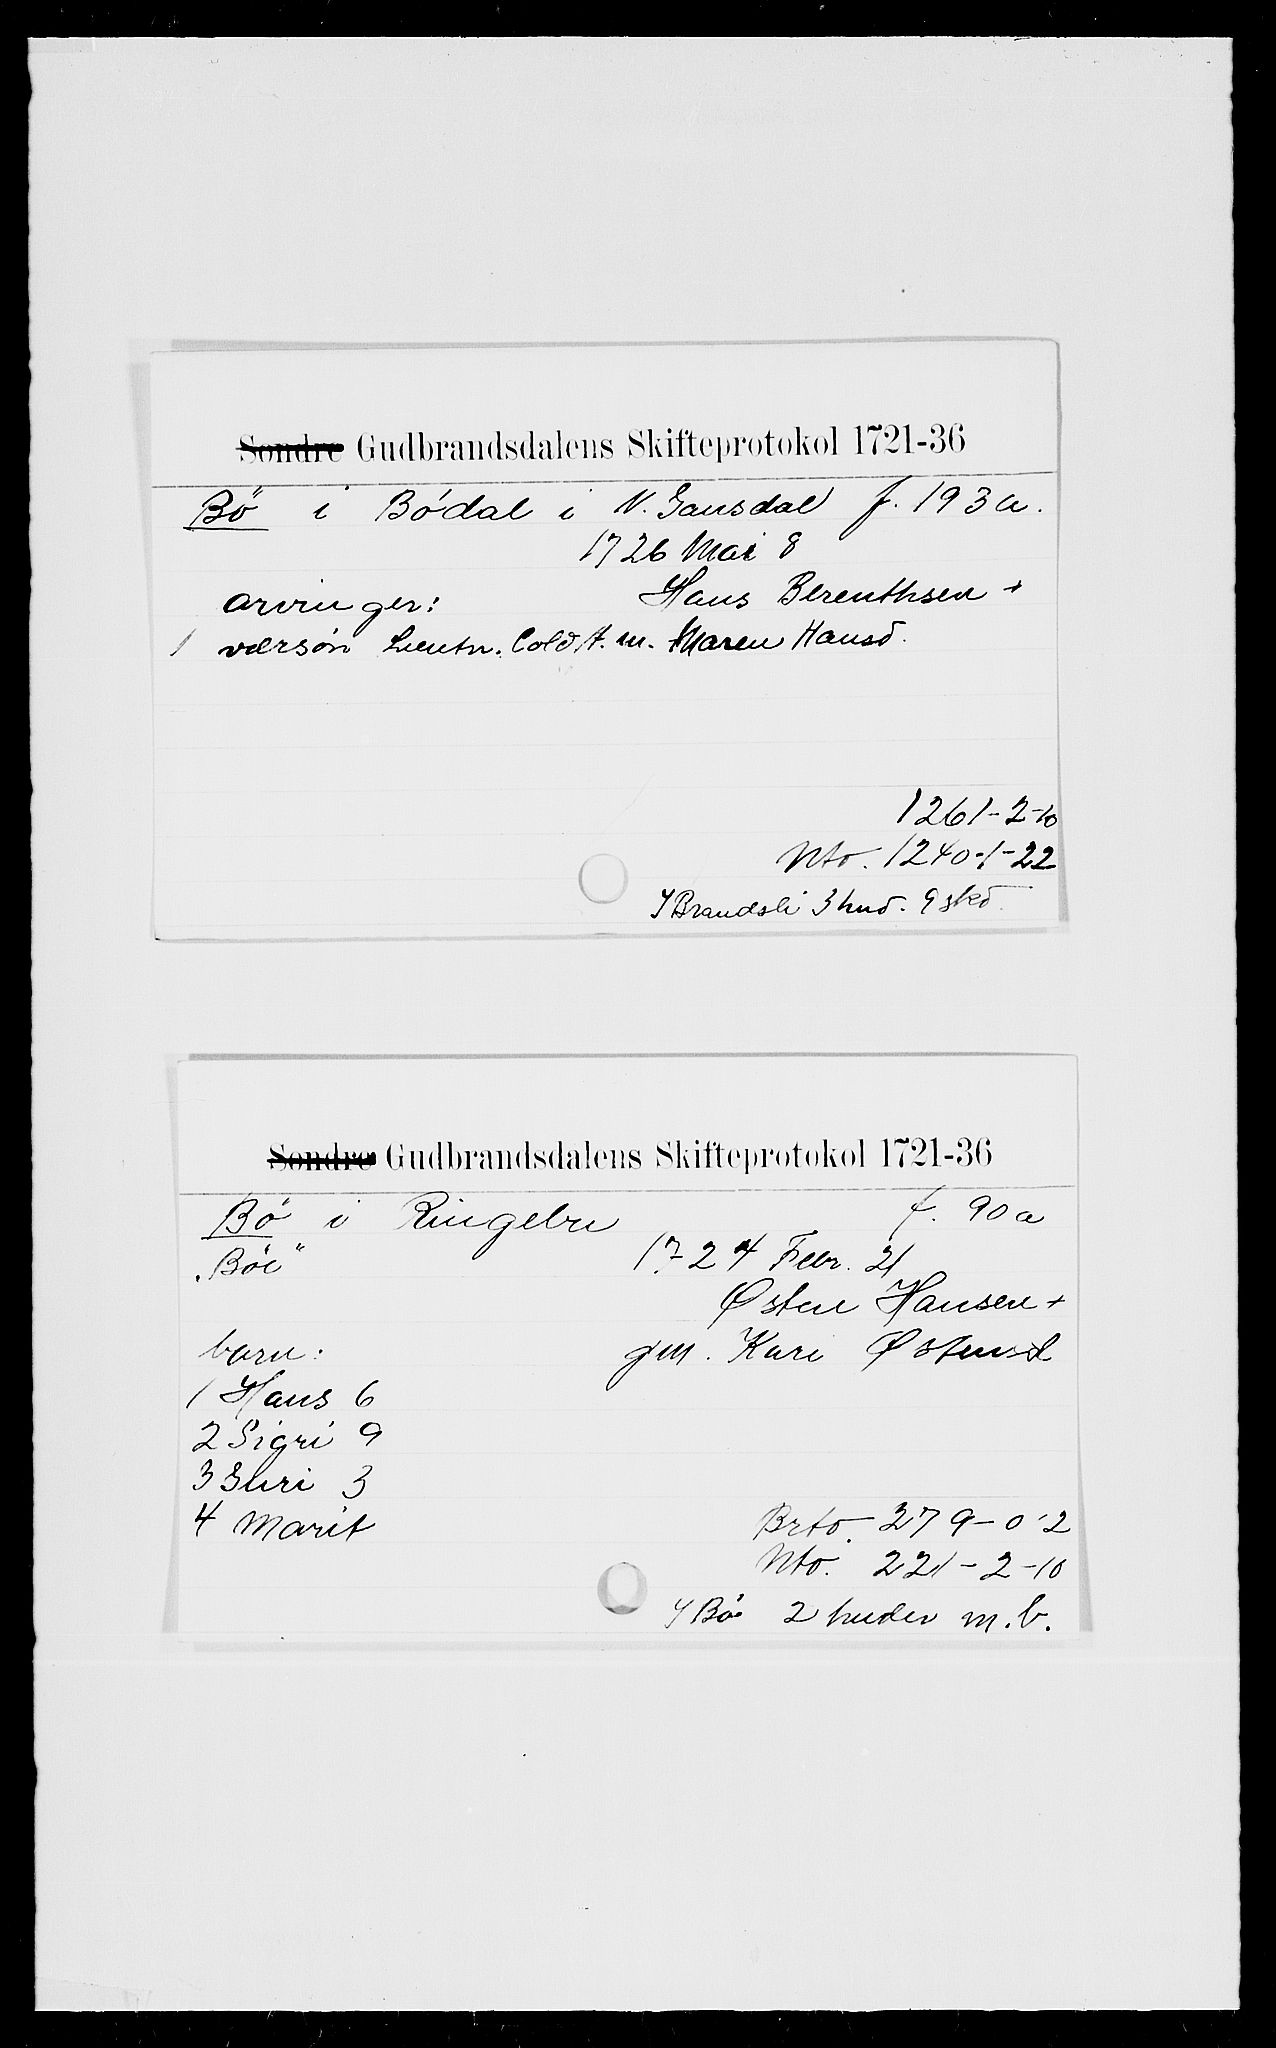 Søndre Gudbrandsdalens Skifteprotokol 1721-36
Bö i Bödal i N. Gausdal f. 193a.
1726 Mai 8
arvinger: Hans Berenthsen +
1 værsön Lieutn. Coldt. m. Maren Hansd.
1261-2-10
Nto. 1240-1-22
I Brandsli 3 hud. 9 skd.
Søndre Gudbrandsdalens Skifteprotokol 1721-36
Bö i Ringebu f. 90a
"Böe" 1724 Febr. 21
Østen Hansen +
born: gm. Kari Østensd
1 Hans 6
2 Sigri 9
3 Guri 3
4 Marit Brto. 279-0-2
Nto. 221-2-10
I Böe 2 huder m.b.